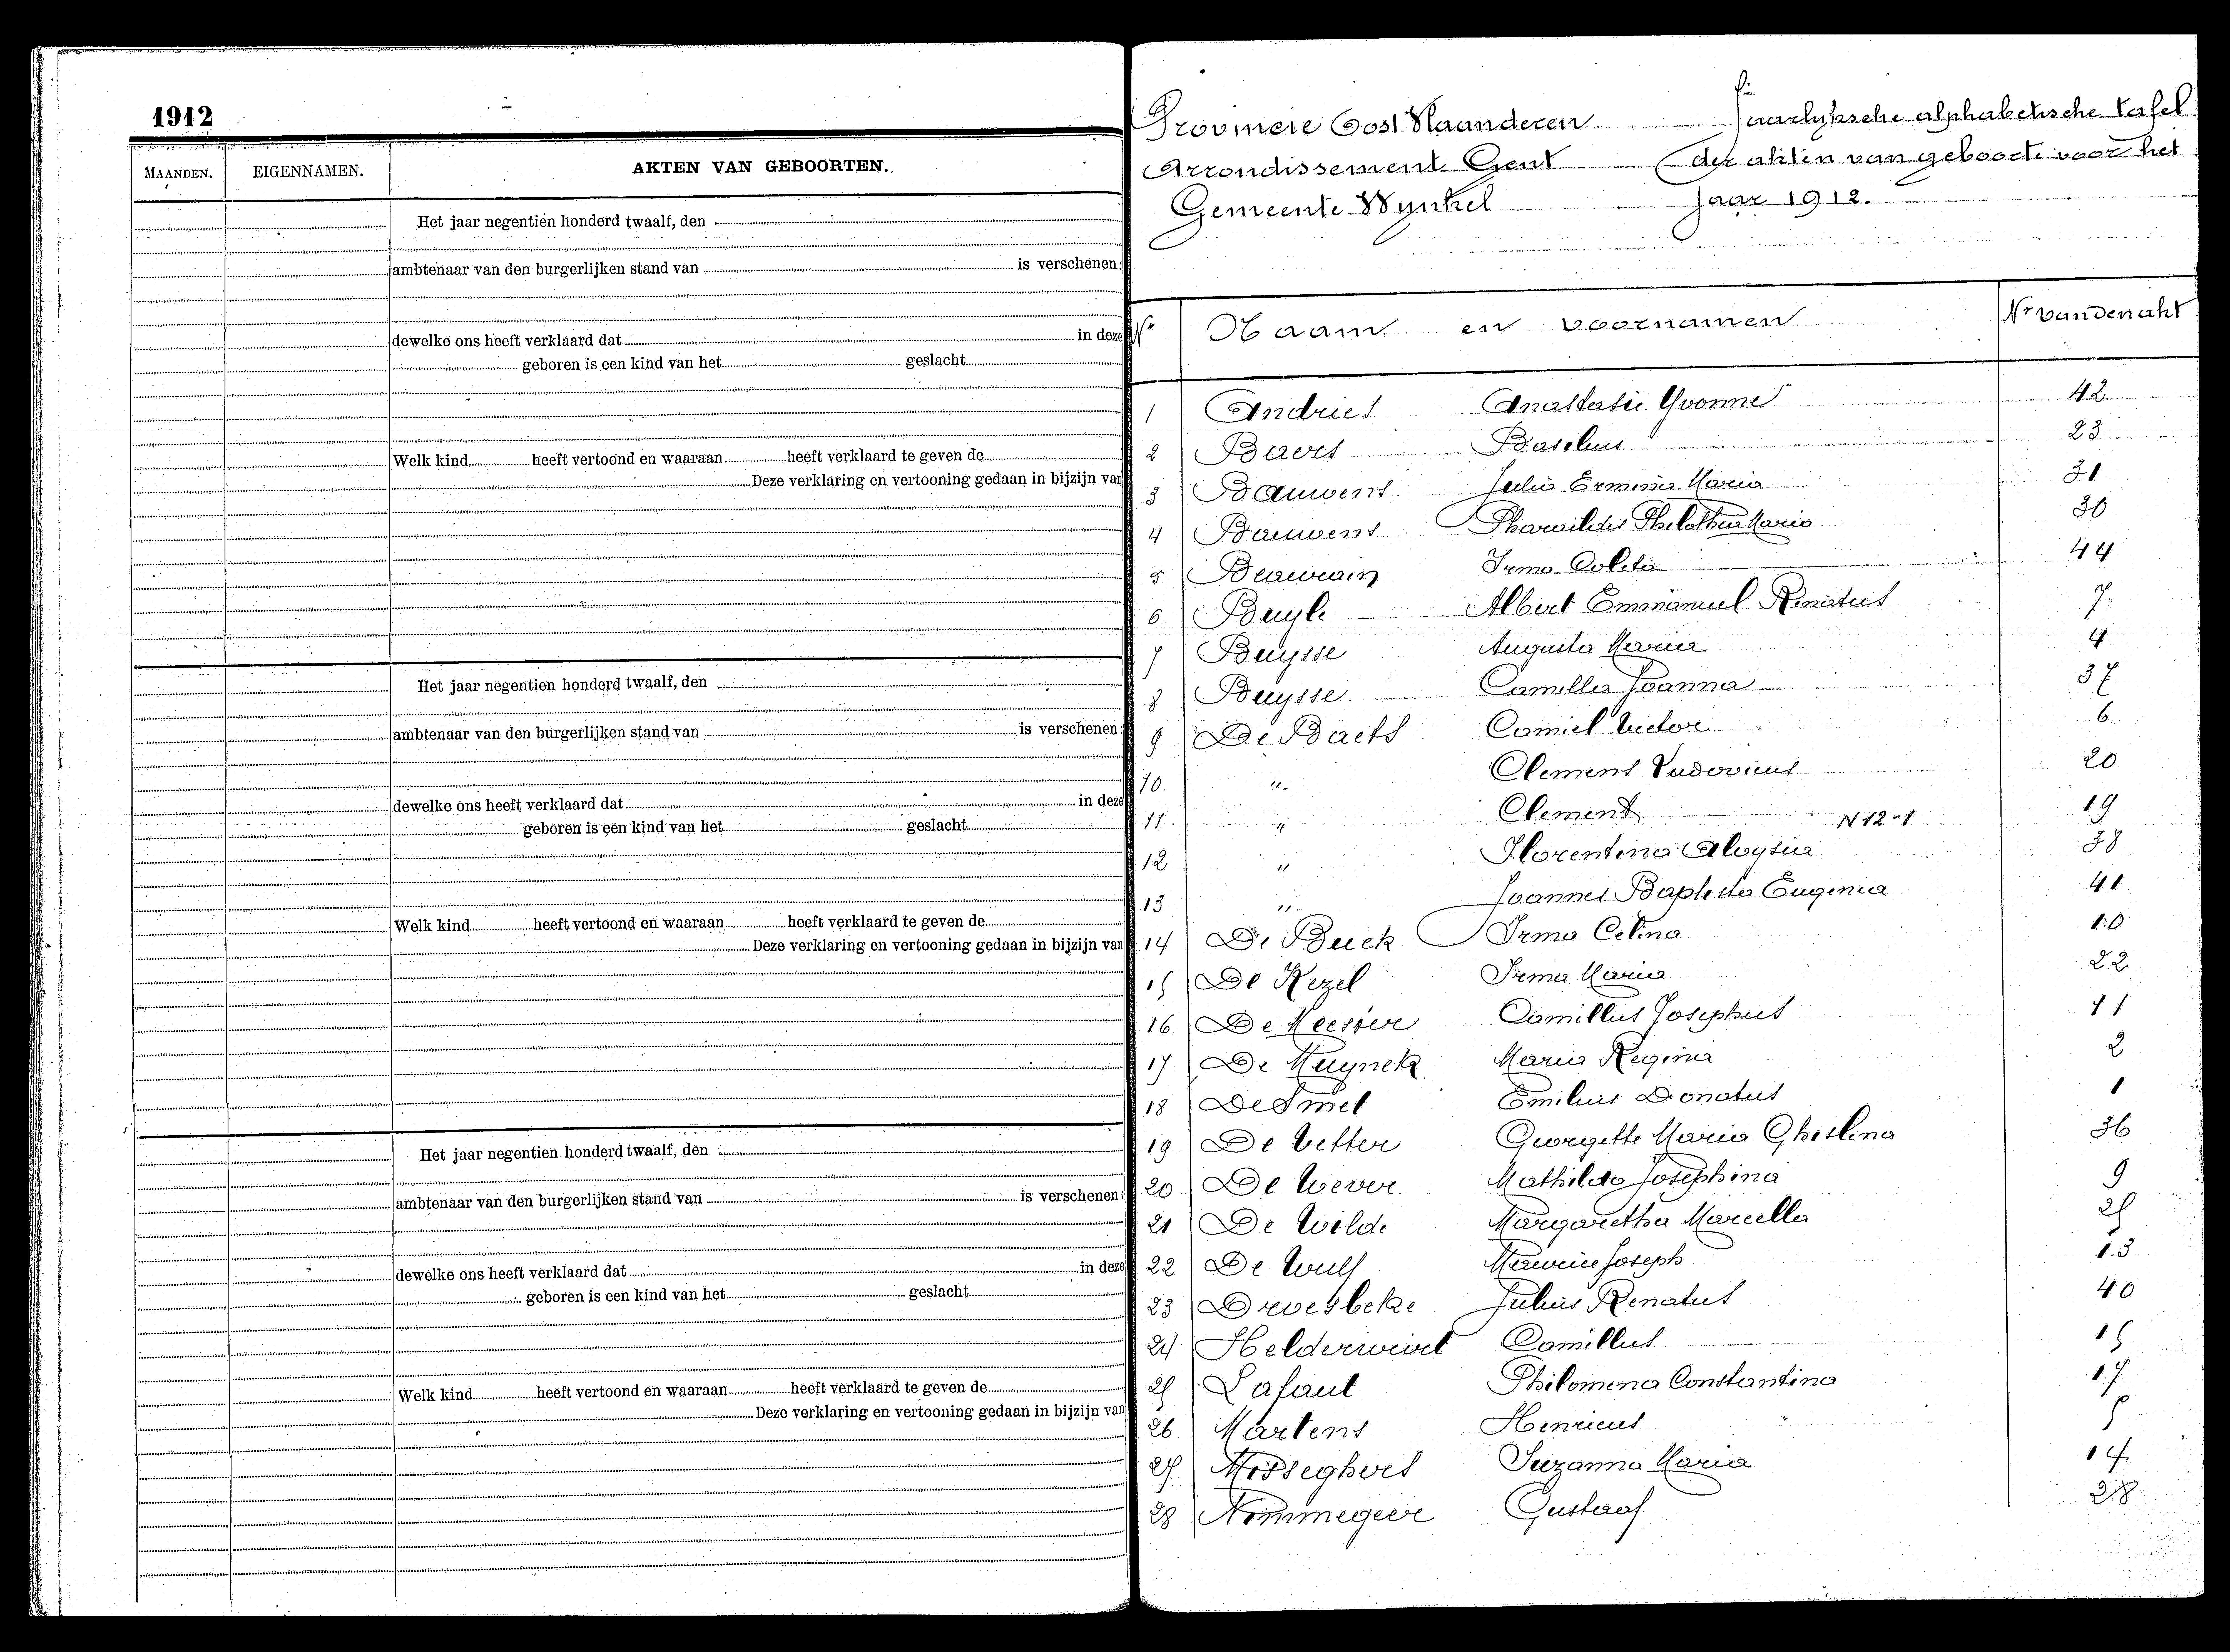 1912
MAANDEN. EIGENNAMEN. AKTEN VAN GEBOORTEN.
Het jaar negentien honderd twaalf, den
ambtenaar van den burgerlijken stand van is verschenen:
dewelke ons heeft verklaard dat in deze
geboren is een kind van het geslacht
Welk kind heeft vertoond en waaraan heeft verklaard te geven de
Deze verklaring en vertooning gedaan in bijzijn van
Het jaar negentien honderd twaalf, den
ambtenaar van den burgerlijken stand van is verschenen:
dewelke ons heeft verklaard dat in deze
geboren is een kind van het geslacht
Welk kind heeft vertoond en waaraan heeft verklaard te geven de
Deze verklaring en vertooning gedaan in bijzijn van
Het jaar negentien honderd twaalf, den
ambtenaar van den burgerlijken stand van is verschenen:
dewelke ons heeft verklaard dat in deze
geboren is een kind van het geslacht
Welk kind heeft vertoond en waaraan heeft verklaard te geven de
Deze verklaring en vertooning gedaan in bijzijn van
Provincie Oost Vlaanderen Jaarlyksche alphabetische tafel
Arrondissement Gent der akten van geboorte voor het
Gemeente Wynkel Jaar 1912.
Nr Naam en voornamen Nr van den akt
1 Andries Anastasie Yvonne 42
2 Baers Basilius 23
3 Bauwens Julia Ermina Maria 31
4 Bauwens Pharaildis Philothea Maria 30
5 Beauvain Irma Coleta 44
6 Buyle Albert Emmanuel Renatus 7
7 Buysse Augusta Maria 4
8 Buysse Camilla Joanna 37
9 De Baets Camiel Victor 6
10 " Clement Ludovicus 20
11 " Clement 19
N 12-1
12 " Florentina Aloysia 38
13 " Joannes Baptista Eugenia 41
14 De Buck Irma Celina 10
15 De Kezel Irma Maria 22
16 De Meester Camillus Josephus 11
17 De Muynck Maria Regina 2
18 De Smet Emilius Donatus 1
19 De Vetter Georgette Maria Ghislena 36
20 De Wever Mathilda Josephina 9
21 De Wilde Margaretha Marcella 25
22 De Wulf Maurice Joseph 13
23 Droesbeke Julius Renatus 40
24 Helderweirt Camillus 15
25 Lafaut Philomena Constantina 17
26 Martens Henricus 5
27 Misseghers Suzanna Maria 14
28 Nimmegeer Gustaaf 28